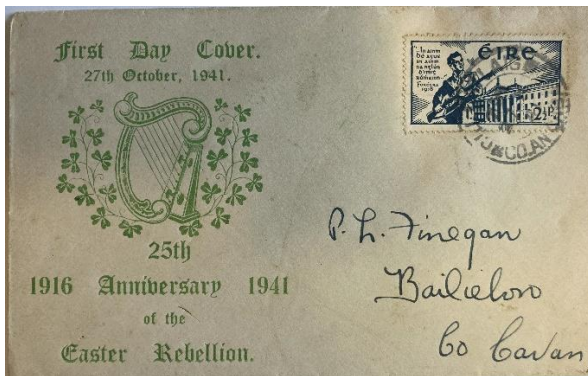 First Day Cover.
27th October, 1941.
25th
1916 Anniversary 1941
of the
Easter Rebellion.
ÉIRE
1916
2½p.
P. L. Finegan
Bailieboro
Co Cavan